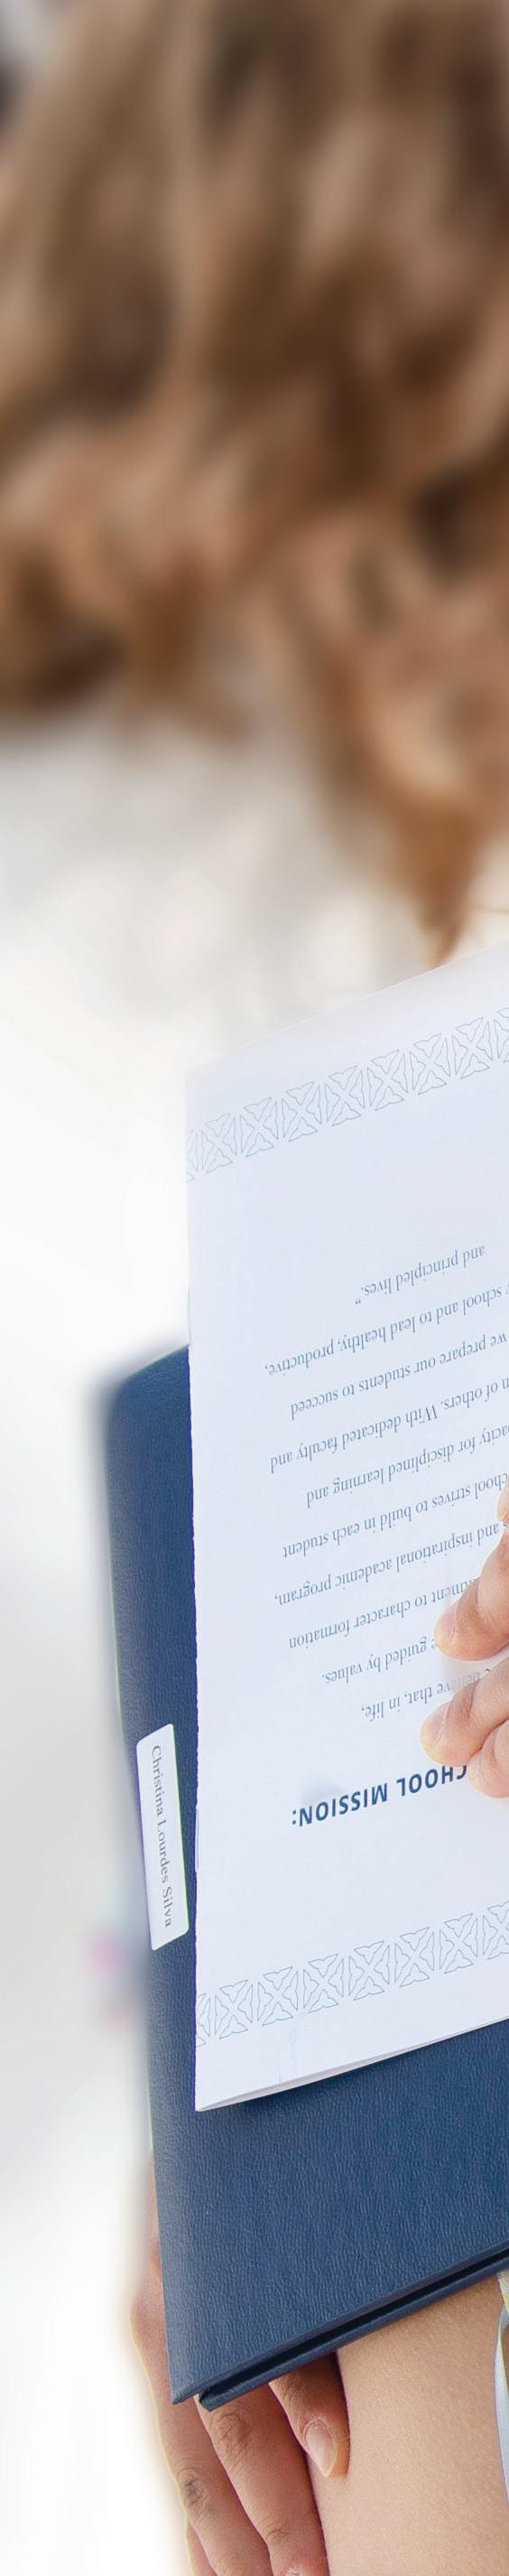 CHOOL MISSION:
that, in life,
guided by values.
to character formation
and inspirational academic program,
chool strives to build in each student
acity for disciplined learning and
of others. With dedicated faculty and
we prepare our students to succeed
school and to lead healthy, productive,
and principled lives.”
Christina Lourdes Silva